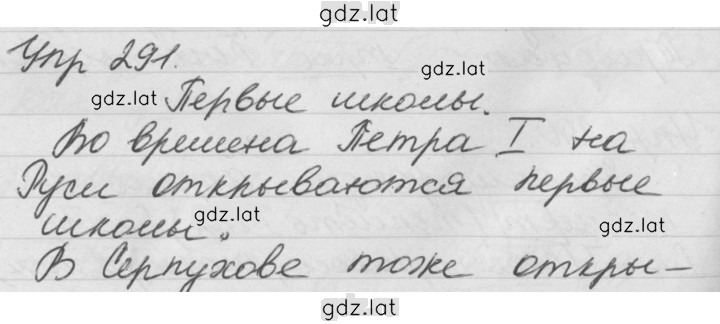 gdz.lat
Упр 291.
gdz.lat
gdz.lat Первые школы.
Во времена Петра I на
Руси открываются первые
школы. gdz.lat gdz.lat
В Серпухове тоже откры-
gdz.lat